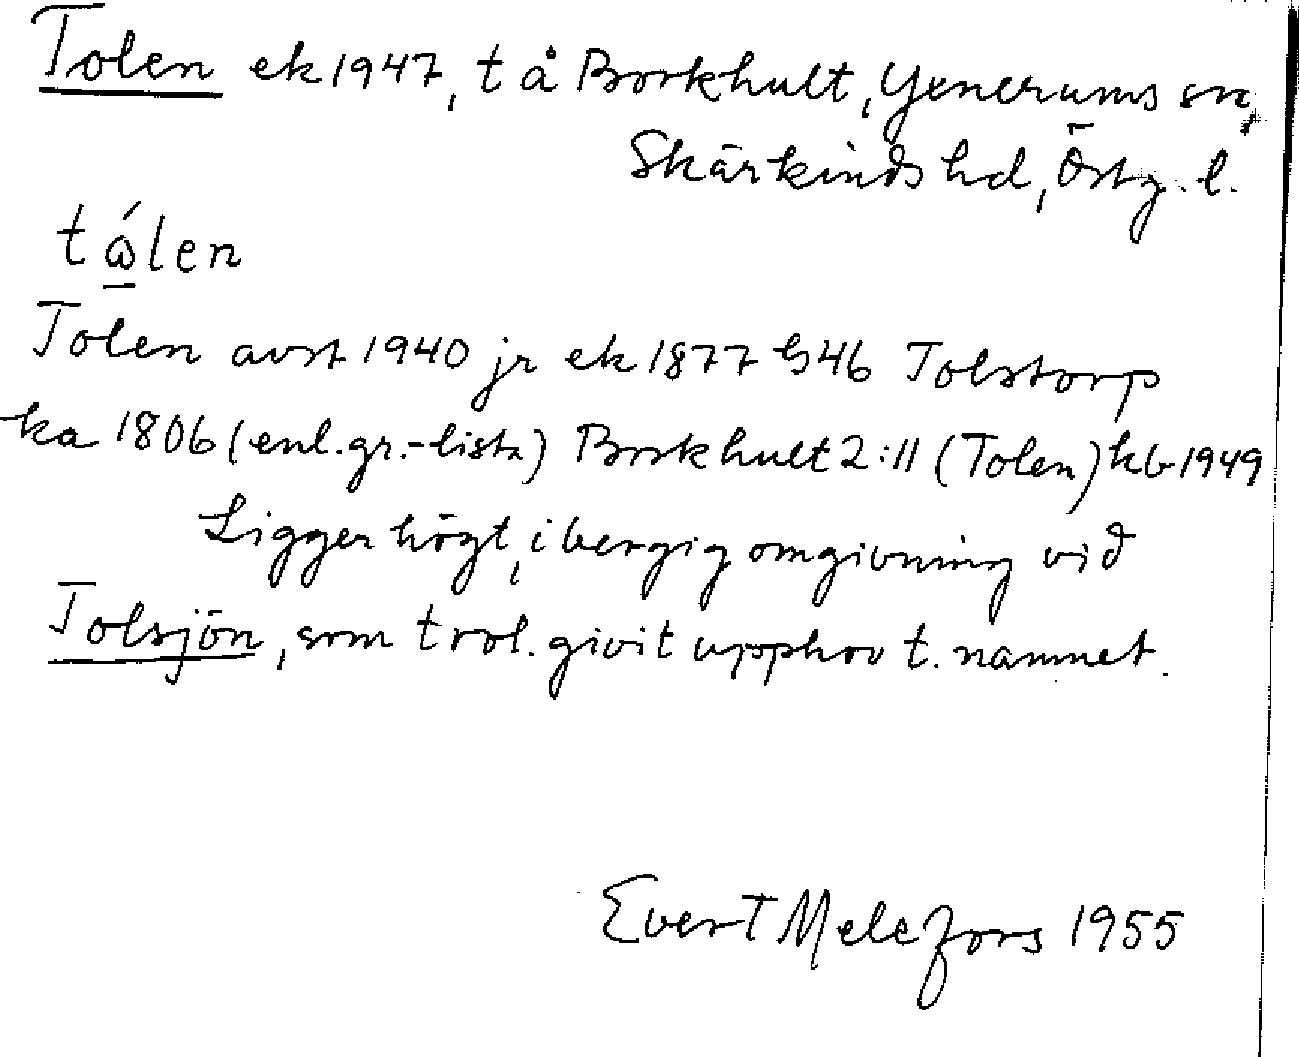 Tolen ek 1947, t å Borkhult, Yxnerums sn,
Skärkinds hd, Östg. l.
tǻlen
Tolen avst 1940 jr ek 1877 b46 Tolstorp
ka 1806 (enl. gr.-lista) Borkhult 2:11 (Tolen) kb 1949
Ligger högt, i bergig omgivning vid
Tolsjön, som trol. givit upphov t. namnet.
Evert Melefors 1955